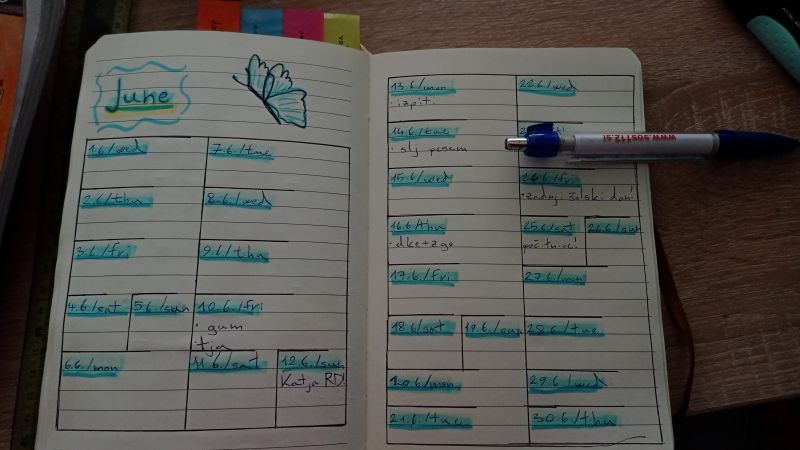 June
1.6./wed
7.6./tue
2.6./thu
8.6./wed
3.6./fri
9.6./thu
4.6./sat
5.6./sun
10.6./fri
· gum
· tja
6.6./mon
11.6./sat
12.6./sun
Katja RD!
13.6./mon
· izpit
22.6./wed
14.6./tue
· slj pesem
15.6./wed
24.6./fri
· zadnji šolski dan!
16.6./thu
· dke+zgo
25.6./sat
počitnice!
26.6./sun
17.6./fri
27.6./mon
18.6./sat
19.6./sun
28.6./tue
20.6./mon
29.6./wed
21.6./tue
30.6./thu
www.sos112.si